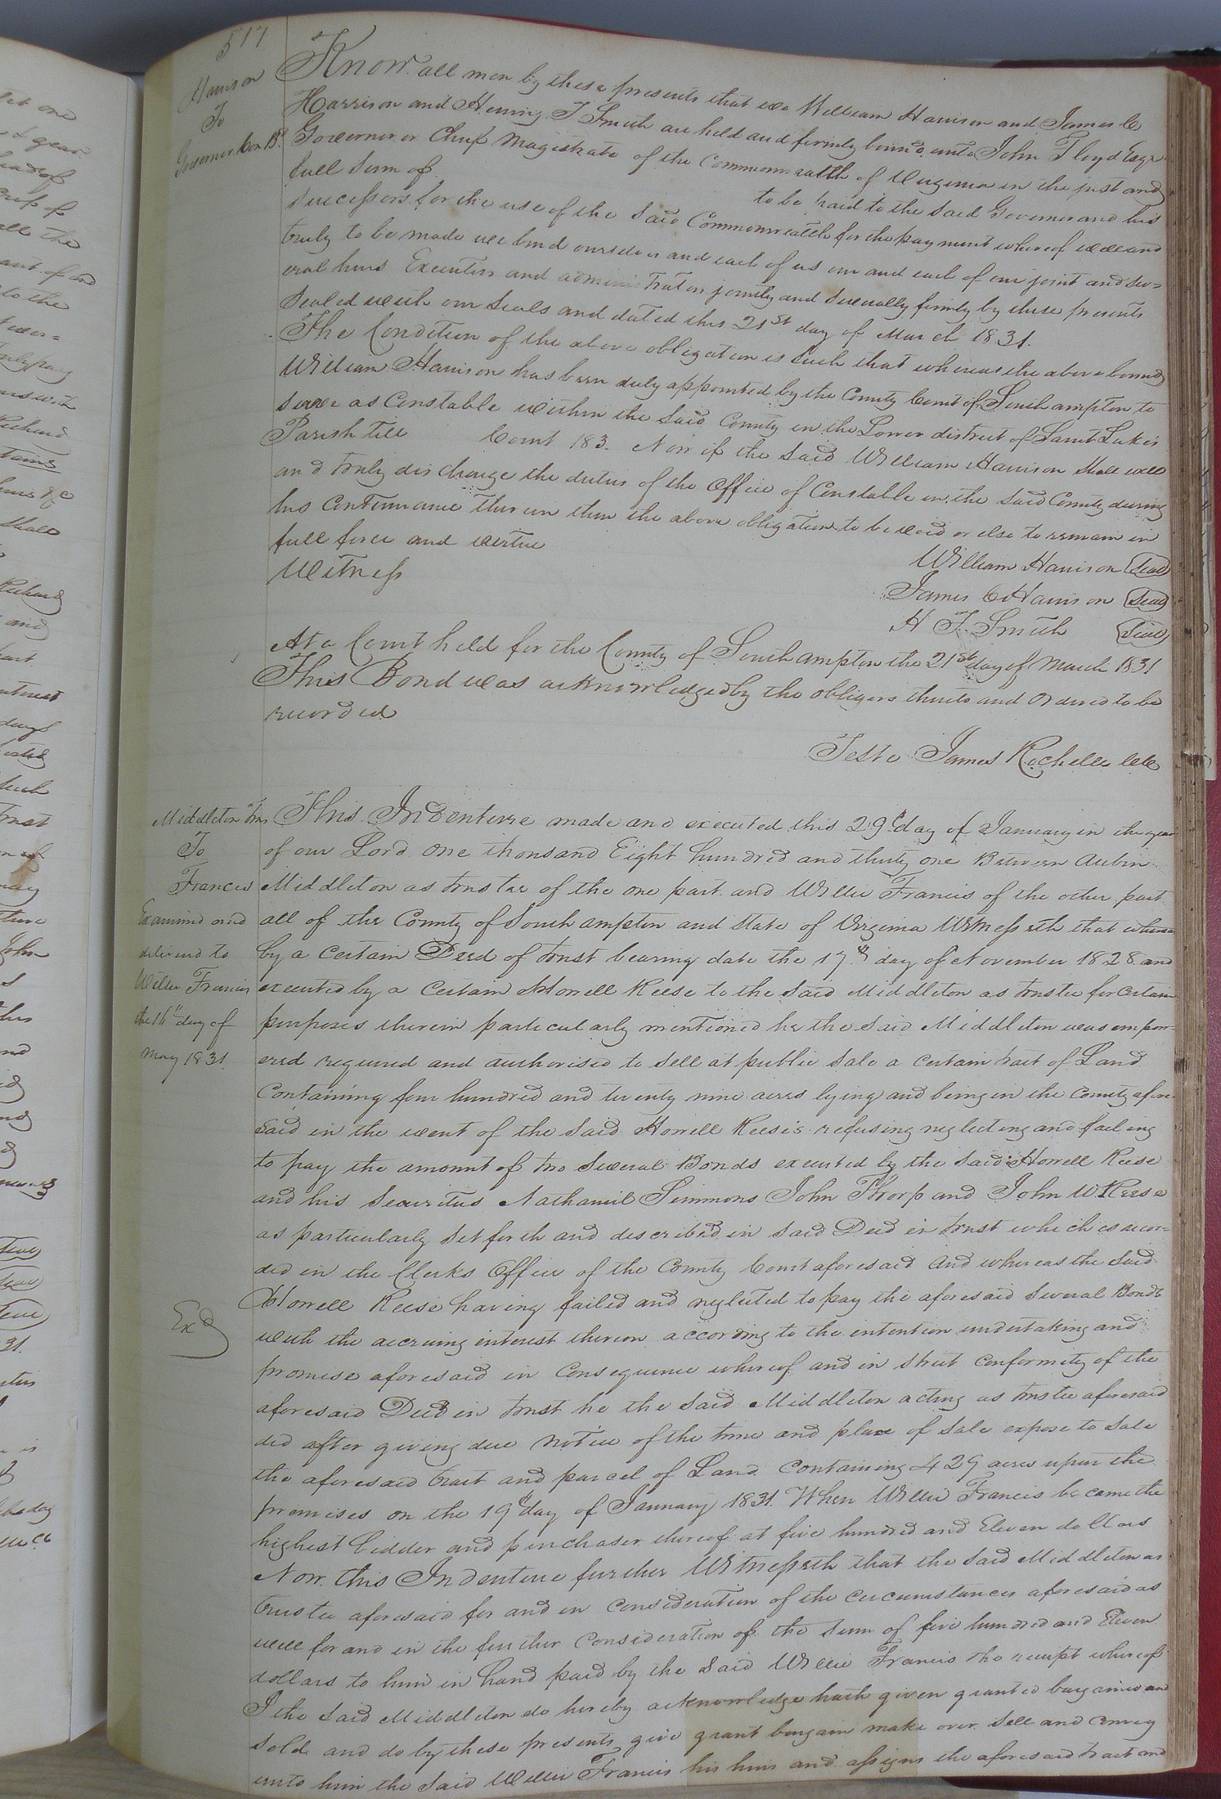 517
Harrison
To
Governor Con Bd
Know all men by these presents that we William Harrison and James C
Harrison and Henry T Smith are held and firmly bound unto John Floyd Esqr
Governor or Chief Magistrate of the Commonwealth of Virginia in the just and
full sum of to be paid to the said Governor and his
successors for the use of the said Commonwealth for the payment whereof well and
truly to be made we bind ourselves and each of us our and each of our joint and sev=
eral heirs Executors and administrators jointly and severally firmly by these presents
Sealed with our seals and dated this 21st day of March 1831.
The Condition of the above obligation is such that whereas the above bound
William Harrison has been duly appointed by the County Court of Southampton to
serve as Constable within the said County in the Lower district of Saint Lukes
Parish till Court 183 . Now if the said William Harrison shall well
and truly discharge the duties of the Office of Constable in the said County during
his continuance therein then the above obligation to be void or else to remain in
full force and virtue
Witness
William Harrison (Seal)
James C Harrison (Seal)
H T Smith (Seal)
At a Court held for the County of Southampton the 21st day of March 1831
This Bond was acknowledged by the obligors thereto and Ordered to be
recorded
Teste James Rochelle Clk
Middleton Trs
To
Francis
Examined and
delivered to
Willie Francis
the 16th day of
May 1831
Exd
This Indenture made and executed this 29th day of January in the year
of our Lord One thousand Eight hundred and thirty one Between Aubin
Middleton as trustee of the one part and Willie Francis of the other part
all of the County of Southampton and State of Virginia Witnesseth that whereas
by a Certain Deed of trust bearing date the 17th day of November 1828 and
executed by a Certain Howell Reese to the said Middleton as trustee for Certain
purposes therein particularly mentioned he the said Middleton was empow-
ered required and authorised to sell at public sale a certain tract of Land
Containing four hundred and twenty nine acres lying and being in the County afore
said in the event of the said Howell Reese's refusing neglecting and failing
to pay the amount of two several Bonds executed by the said Howell Reese
and his Securities Nathaniel Simmons John Thorp and John W Reese
as particularly set forth and described in said Deed in trust which is recor-
ded in the Clerks Office of the County Court aforesaid And whereas the said
Howell Reese having failed and neglected to pay the aforesaid several Bonds
with the accruing interest thereon according to the intention undertaking and
promise aforesaid in Consequence whereof and in strict conformity of the
aforesaid Deed in trust he the said Middleton acting as trustee aforesaid
did after giving due notice of the time and place of sale expose to sale
the aforesaid tract and parcel of Land Containing 429 acres upon the
premises on the 19th day of January 1831. When Willie Francis became the
highest bidder and purchaser thereof at five hundred and Eleven dollars
Now this Indenture further Witnesseth that the said Middleton as
trustee aforesaid for and in consideration of the circumstances aforesaid as
well for and in the further Consideration of the sum of five hundred and Eleven
dollars to him in hand paid by the said Willie Francis the receipt whereof
I the said Middleton do hereby acknowledge hath given granted bargained and
sold and do by these presents give grant bargain make over sell and convey
unto him the said Willie Francis his heirs and assigns the aforesaid tract and